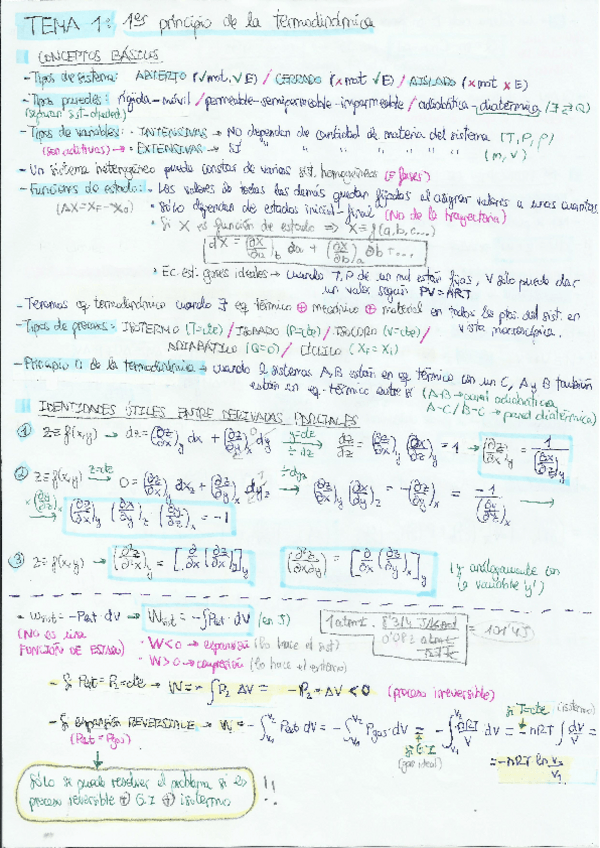 TEMA 1: 1er principio de la termodinámica
CONCEPTOS BÁSICOS
- Tipos de sistema: ABIERTO (√mat, √E) / CERRADO (x mat √E) / AISLADO (x mat x E)
- Tipos paredes: rígida-móvil / permeable-semipermeable-impermeable / adiabática-diatérmica (∃ Q)
- Tipos de variables: · INTENSIVAS → No dependen de cantidad de materia del sistema (T, P, ρ)
(son aditivas) → · EXTENSIVAS → Sí " " " " " (m, V)
- Un sistema heterogéneo puede constar de varios sist. homogéneos (= fases)
- Funciones de estado: · Los valores de todas las demás quedan fijadas al asignar valores a unas cuantas.
(ΔX = X_F - X_0) · Sólo dependen de estados inicial-final (No de la trayectoria)
· Si X es función de estado ⇒ X = f(a, b, c...)
dX = (∂X/∂a)_b da + (∂X/∂b)_a ∂b + ...
· Ec. est. gases ideales → cuando T, P de un mol están fijas, V sólo puede dar
un valor según PV = nRT
- Tenemos eq. termodinámico cuando ∃ eq térmico ⊕ mecánico ⊕ material en todos los ptos. del sist. en
vista macroscópica.
- Tipos de procesos: ISOTERMO (T=cte) / ISOBARO (P=cte) / ISOCORO (V=cte) /
ADIABÁTICO (Q=0) / CÍCLICO (X_F = X_i)
- Principio 0 de la termodinámica → cuando 2 sistemas A, B están en eq térmico con un C, A y B también
están en eq. térmico entre sí (A-B → pared adiabática
A-C / B-C → pared diatérmica)
IDENTIDADES ÚTILES ENTRE DERIVADAS PARCIALES
① z = f(x, y) → dz = (∂z/∂x)_y dx + (∂z/∂y)_x dy → (∂z/∂x)_y = 1/(∂x/∂z)_y
② z = f(x, y) z=cte → 0 = (∂z/∂x)_y dx_z + (∂z/∂y)_x dy_z ÷dy_z → (∂z/∂x)_y (∂x/∂y)_z = -(∂z/∂y)_x = -1/(∂y/∂z)_x →
(∂z/∂x)_y (∂x/∂y)_z (∂y/∂z)_x = -1
③ z = f(x, y) → (∂²z/∂x²)_y = [∂/∂x (∂z/∂x)_y]_y (∂²z/∂x∂y) = [∂/∂x (∂z/∂y)_x]_y (y análogamente con
la variable 'y')
· W = -Pext · dV → W = -∫Pext · dV (en J)
(NO es una
FUNCIÓN DE ESTADO)
· W<0 → expansión (lo hace el sist)
· W>0 → compresión (lo hace el entorno)
= 101'4J
- Si Pext = P₂ = cte → W = -∫P₂ dV = -P₂ · ΔV < 0 (proceso irreversible)
- Si expansión REVERSIBLE → W = -∫ Pext dV = -∫ Pgas · dV = -∫ nRT/V dV = -nRT ∫ dV/V =
(Pext = Pgas)
si G.I (gas ideal)
si T=cte (isotermo)
= -nRT ln V₂/V₁
Sólo se puede resolver el problema si es
proceso reversible ⊕ G.I ⊕ isotermo !!